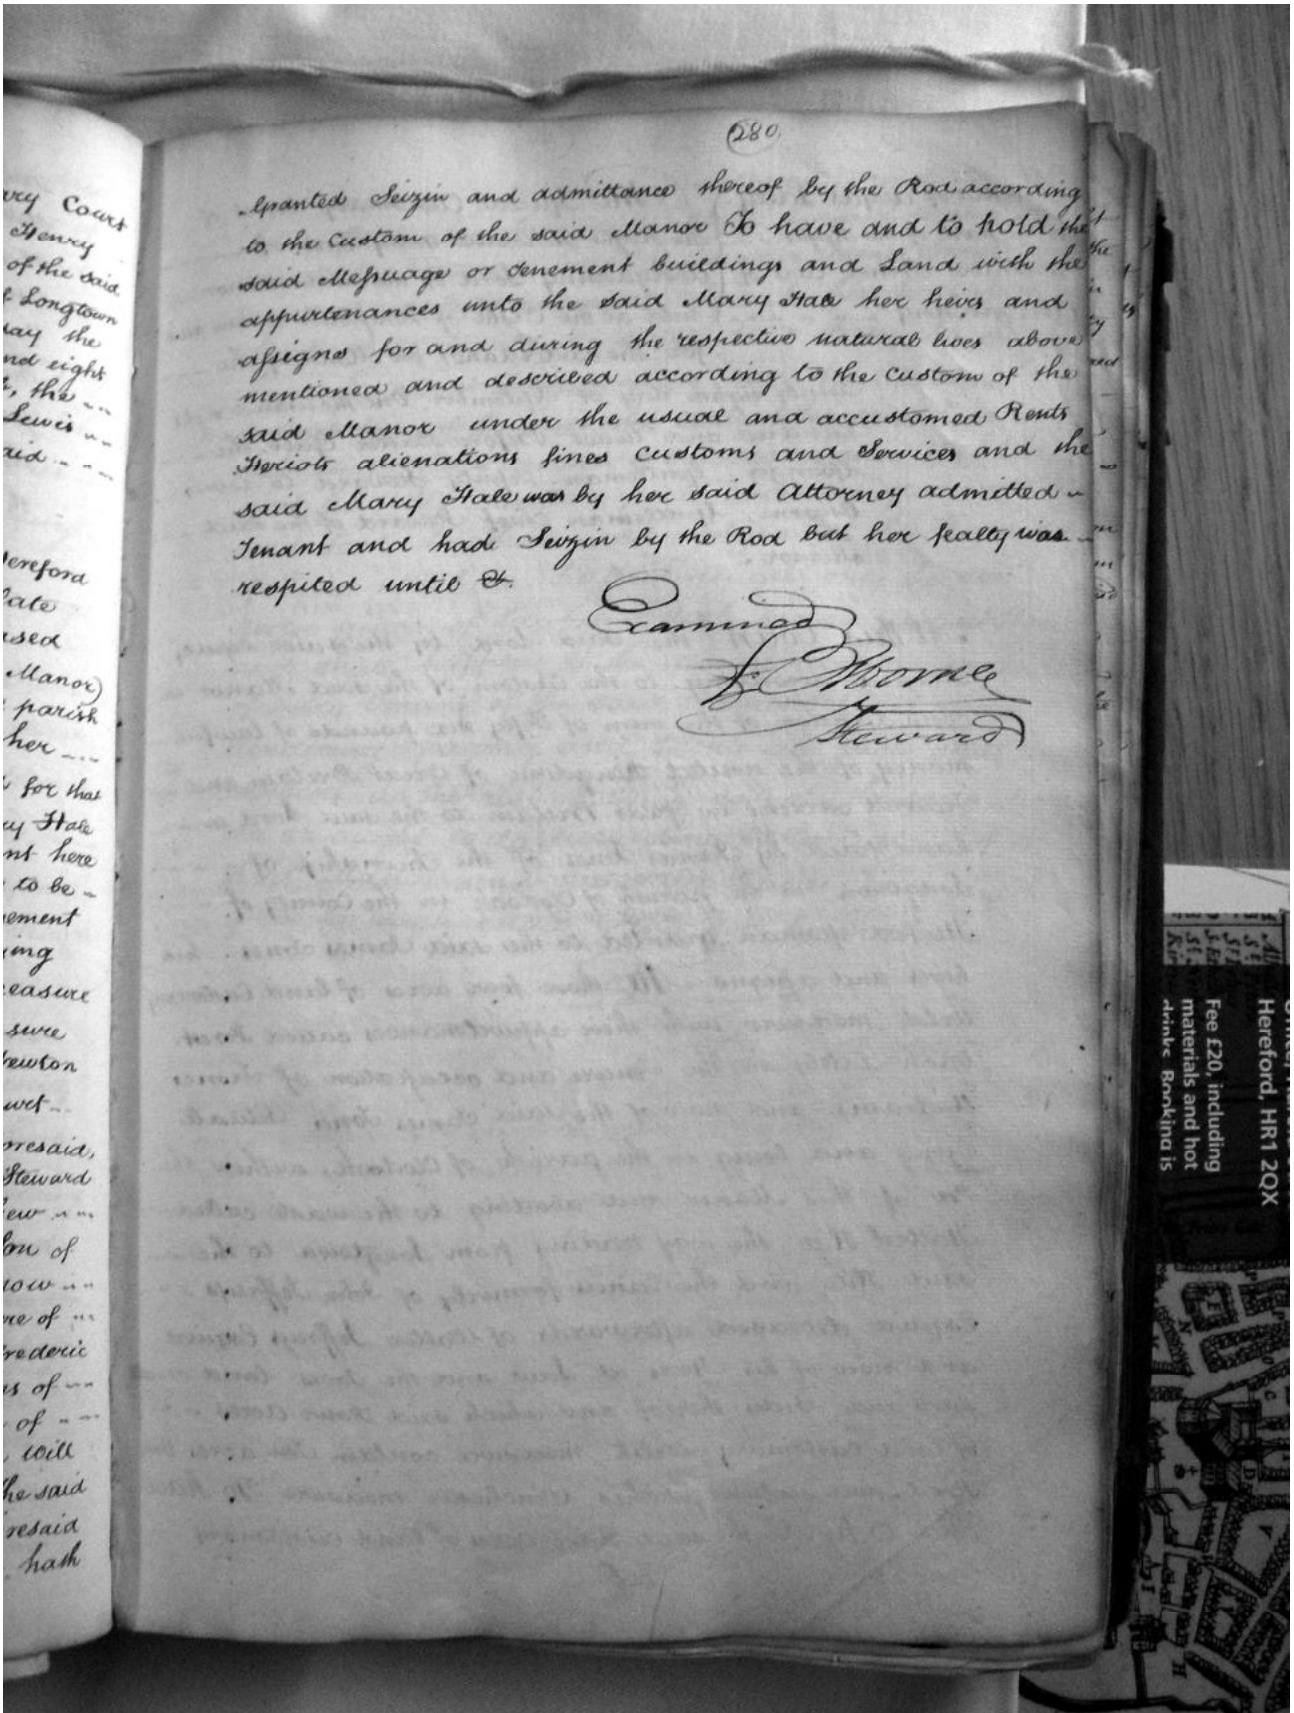 ary Court
Henry
of the said
Longtown
say the
nd eight
the
Lewis
aid
ereford
late
ased
Manor)
parish
her
for that
ry Hale
nt here
to be
ement
ing
easure
sure
ewton
oresaid,
Steward
ew
Son of
now
re of
rederic
s of
of
will
he said
resaid
hath
280
Granted Seizin and admittance thereof by the Rod according
to the Custom of the said Manor To have and to hold the
said Messuage or tenement buildings and Land with the
appurtenances unto the said Mary Hale her heirs and
assigns for and during the respective natural lives above
mentioned and described according to the Custom of the
said Manor under the usual and accustomed Rents
Heriots alienations fines Customs and Services and the
said Mary Hale was by her said Attorney admitted
Tenant and had Seizin by the Rod but her fealty was
respited until &c.
Examined
Steward
Hereford, HR1 2QX
Fee £20, including
materials and hot
drinks. Booking is